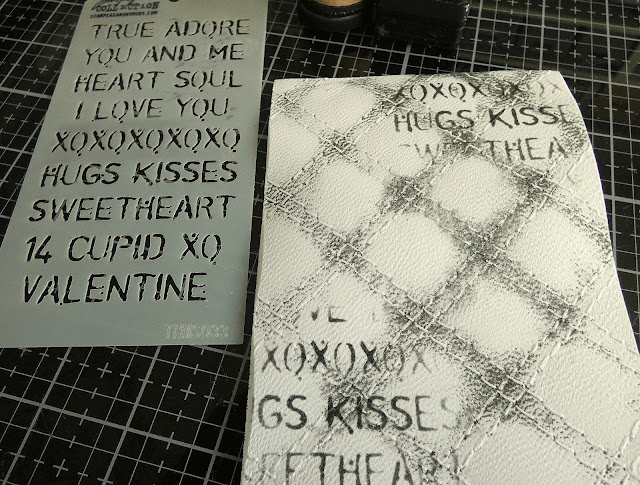 COLLECTION
STAMPERSANONYMOUS.COM
TRUE ADORE
YOU AND ME
HEART SOUL
I LOVE YOU
XOXOXOXOXO
HUGS KISSES
SWEETHEART
14 CUPID XO
VALENTINE
XOXOXOXOX
HUGS KISSE
SWEETHEA
VE
XOXOXOX
GS KISSES
EETHEART